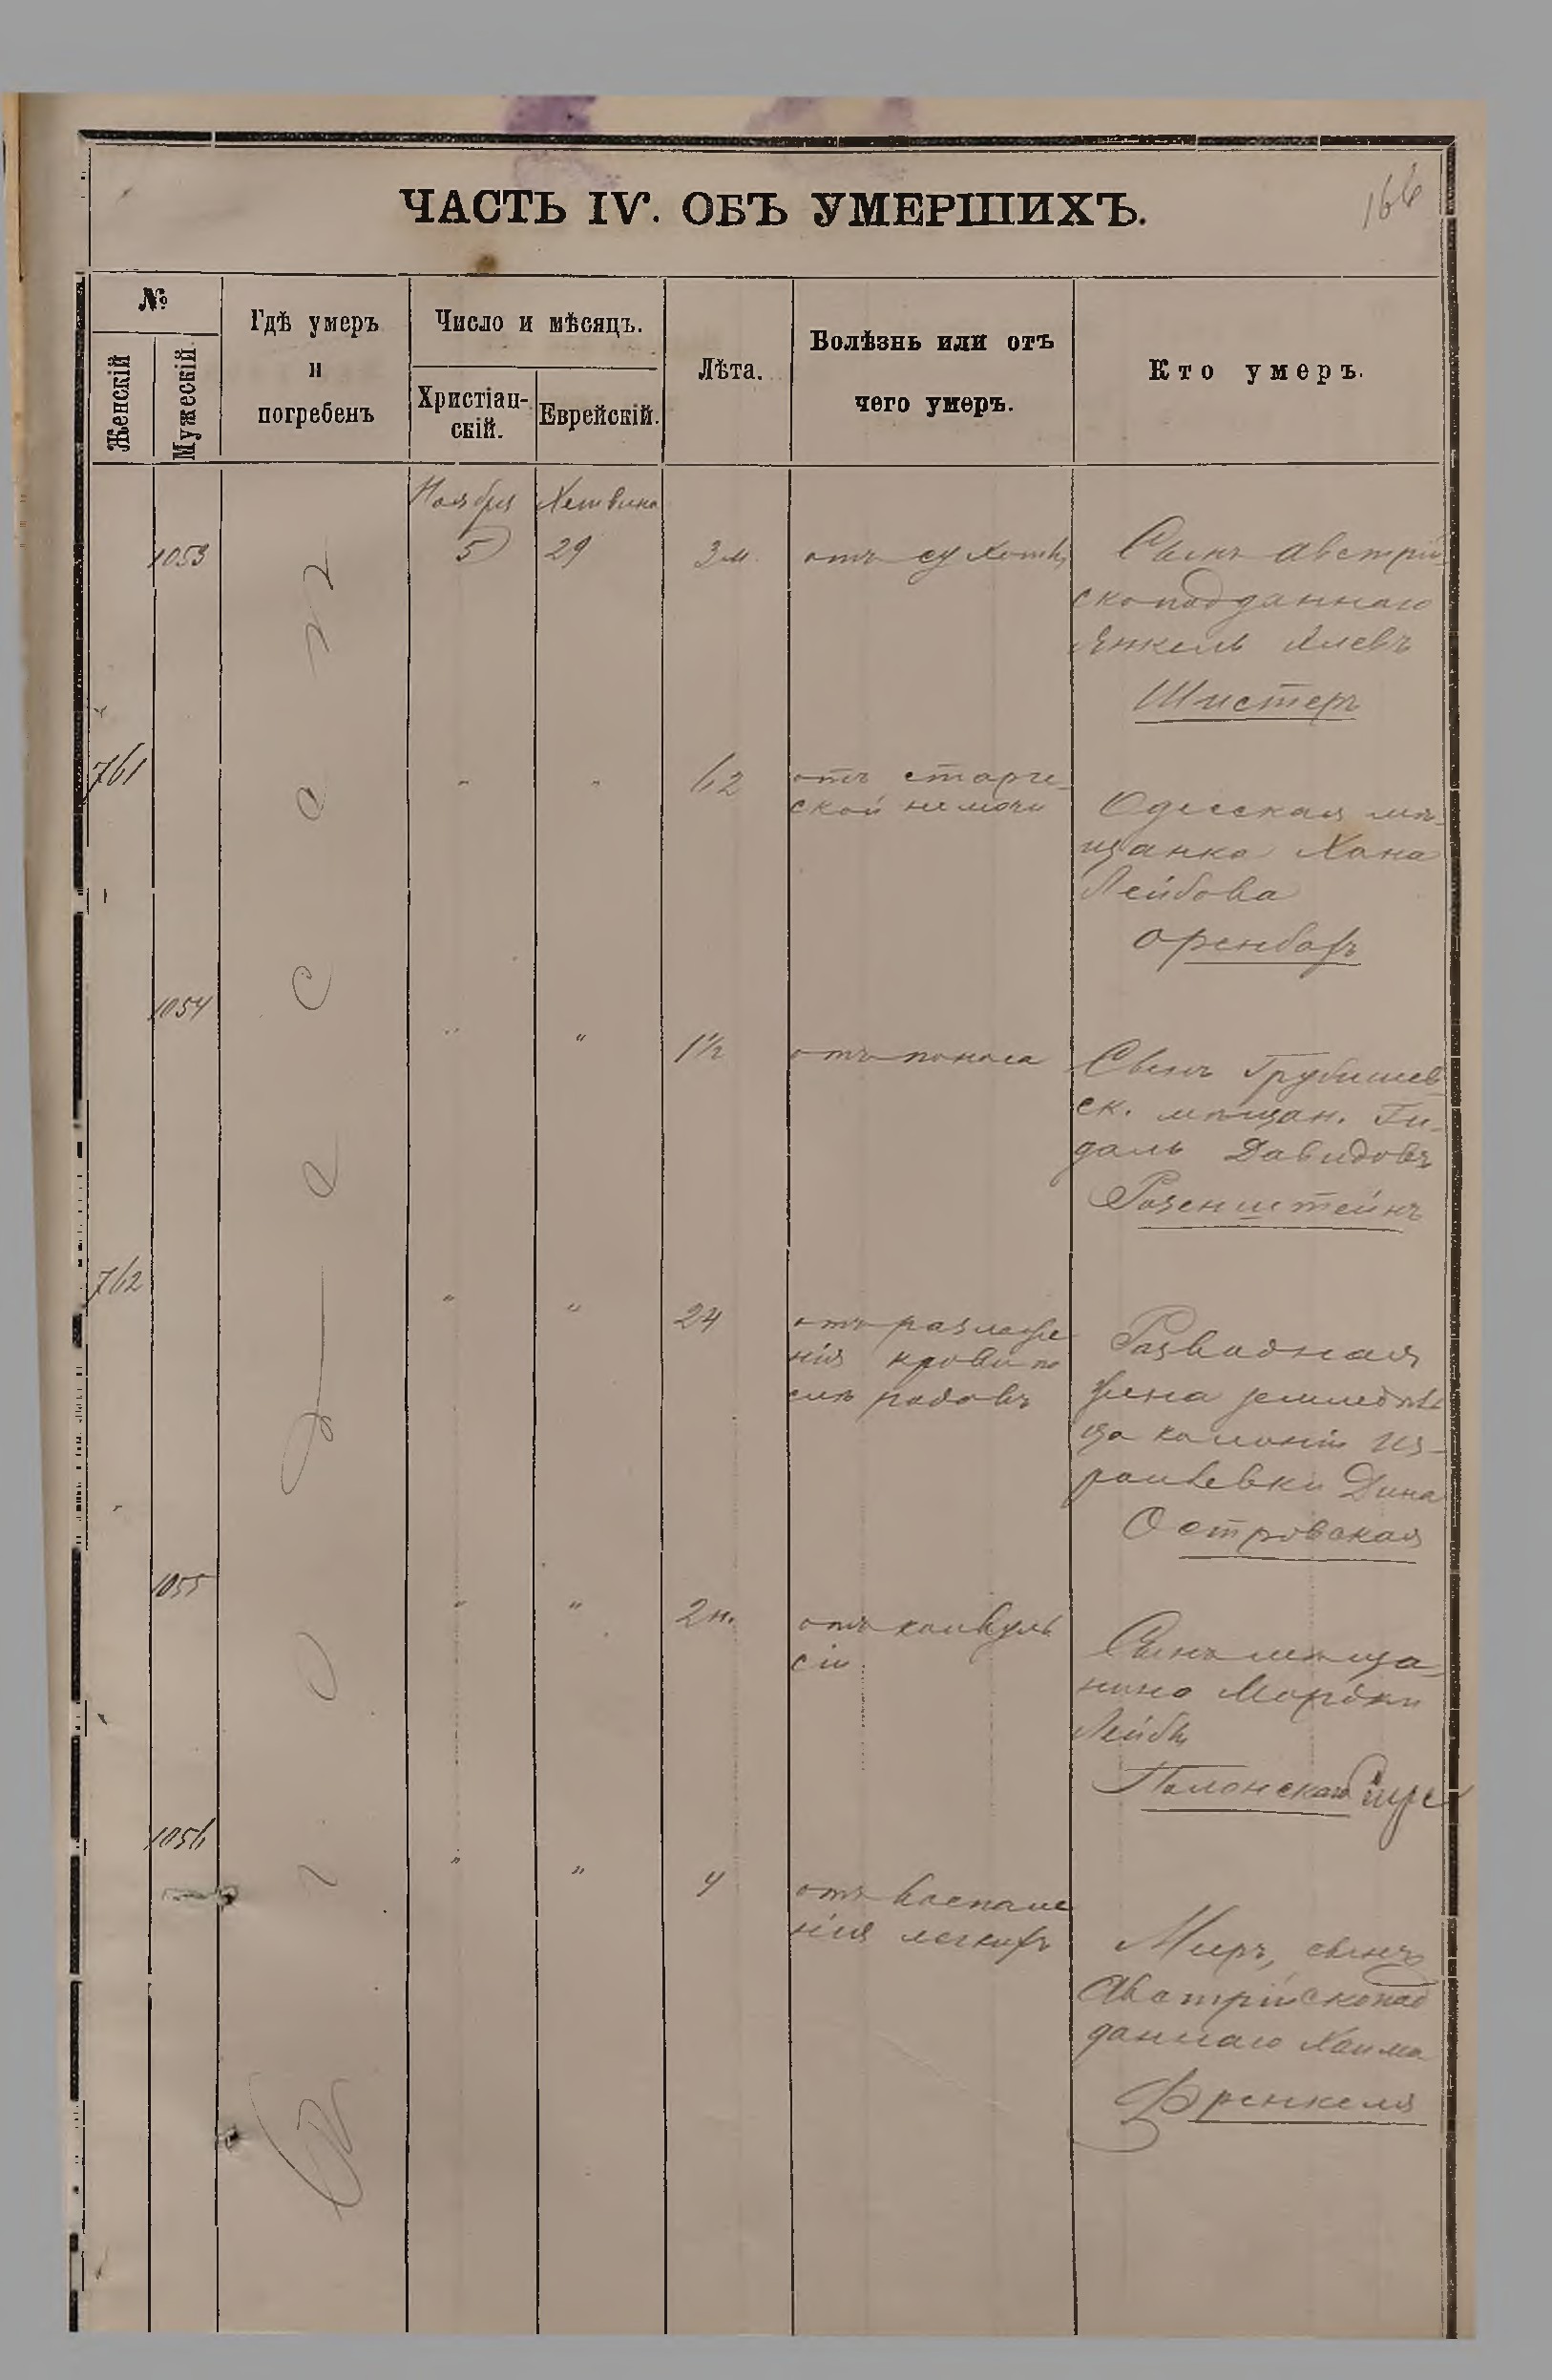 166
ЧАСТЬ IV. ОБЪ УМЕРШИХЪ.
№
Женскій
Мужескій
Гдѣ умеръ
и
погребенъ
Число и мѣсяцъ.
Христіан-
скій.
Еврейскій.
Лѣта.
Болѣзнь или отъ
чего умеръ.
Кто умеръ.
Въ Одессѣ
Ноября Хешвина
1053 5 29 3 м. отъ сухотки
Сынъ австрій-
скоподданнаго
Янкель
Шистеръ
761 " " 62 отъ старче-
ской немочи
Одесская мѣ-
щанка Хана
Лейбова
Оренбахъ
1054 " " 1½ отъ поноса
Сынъ Грубешев-
ск. мѣщан. Ги-
даль Давидовъ
Розенштейнъ
762 " " 24 отъ разложе
нія крови по
слѣ родовъ
Разводная
жена земледѣль
ца колоніи Из-
раилевки Дина
Островская
1055 " " 2 н. отъ конвуль
сіи
Сынъ мѣща-
нина Мордки
Лейбы
Полонскаго
1056 " " 4 отъ воспале
нія легкихъ
Меръ, сынъ
Австрійскопод
даннаго Хаима
Френкеля